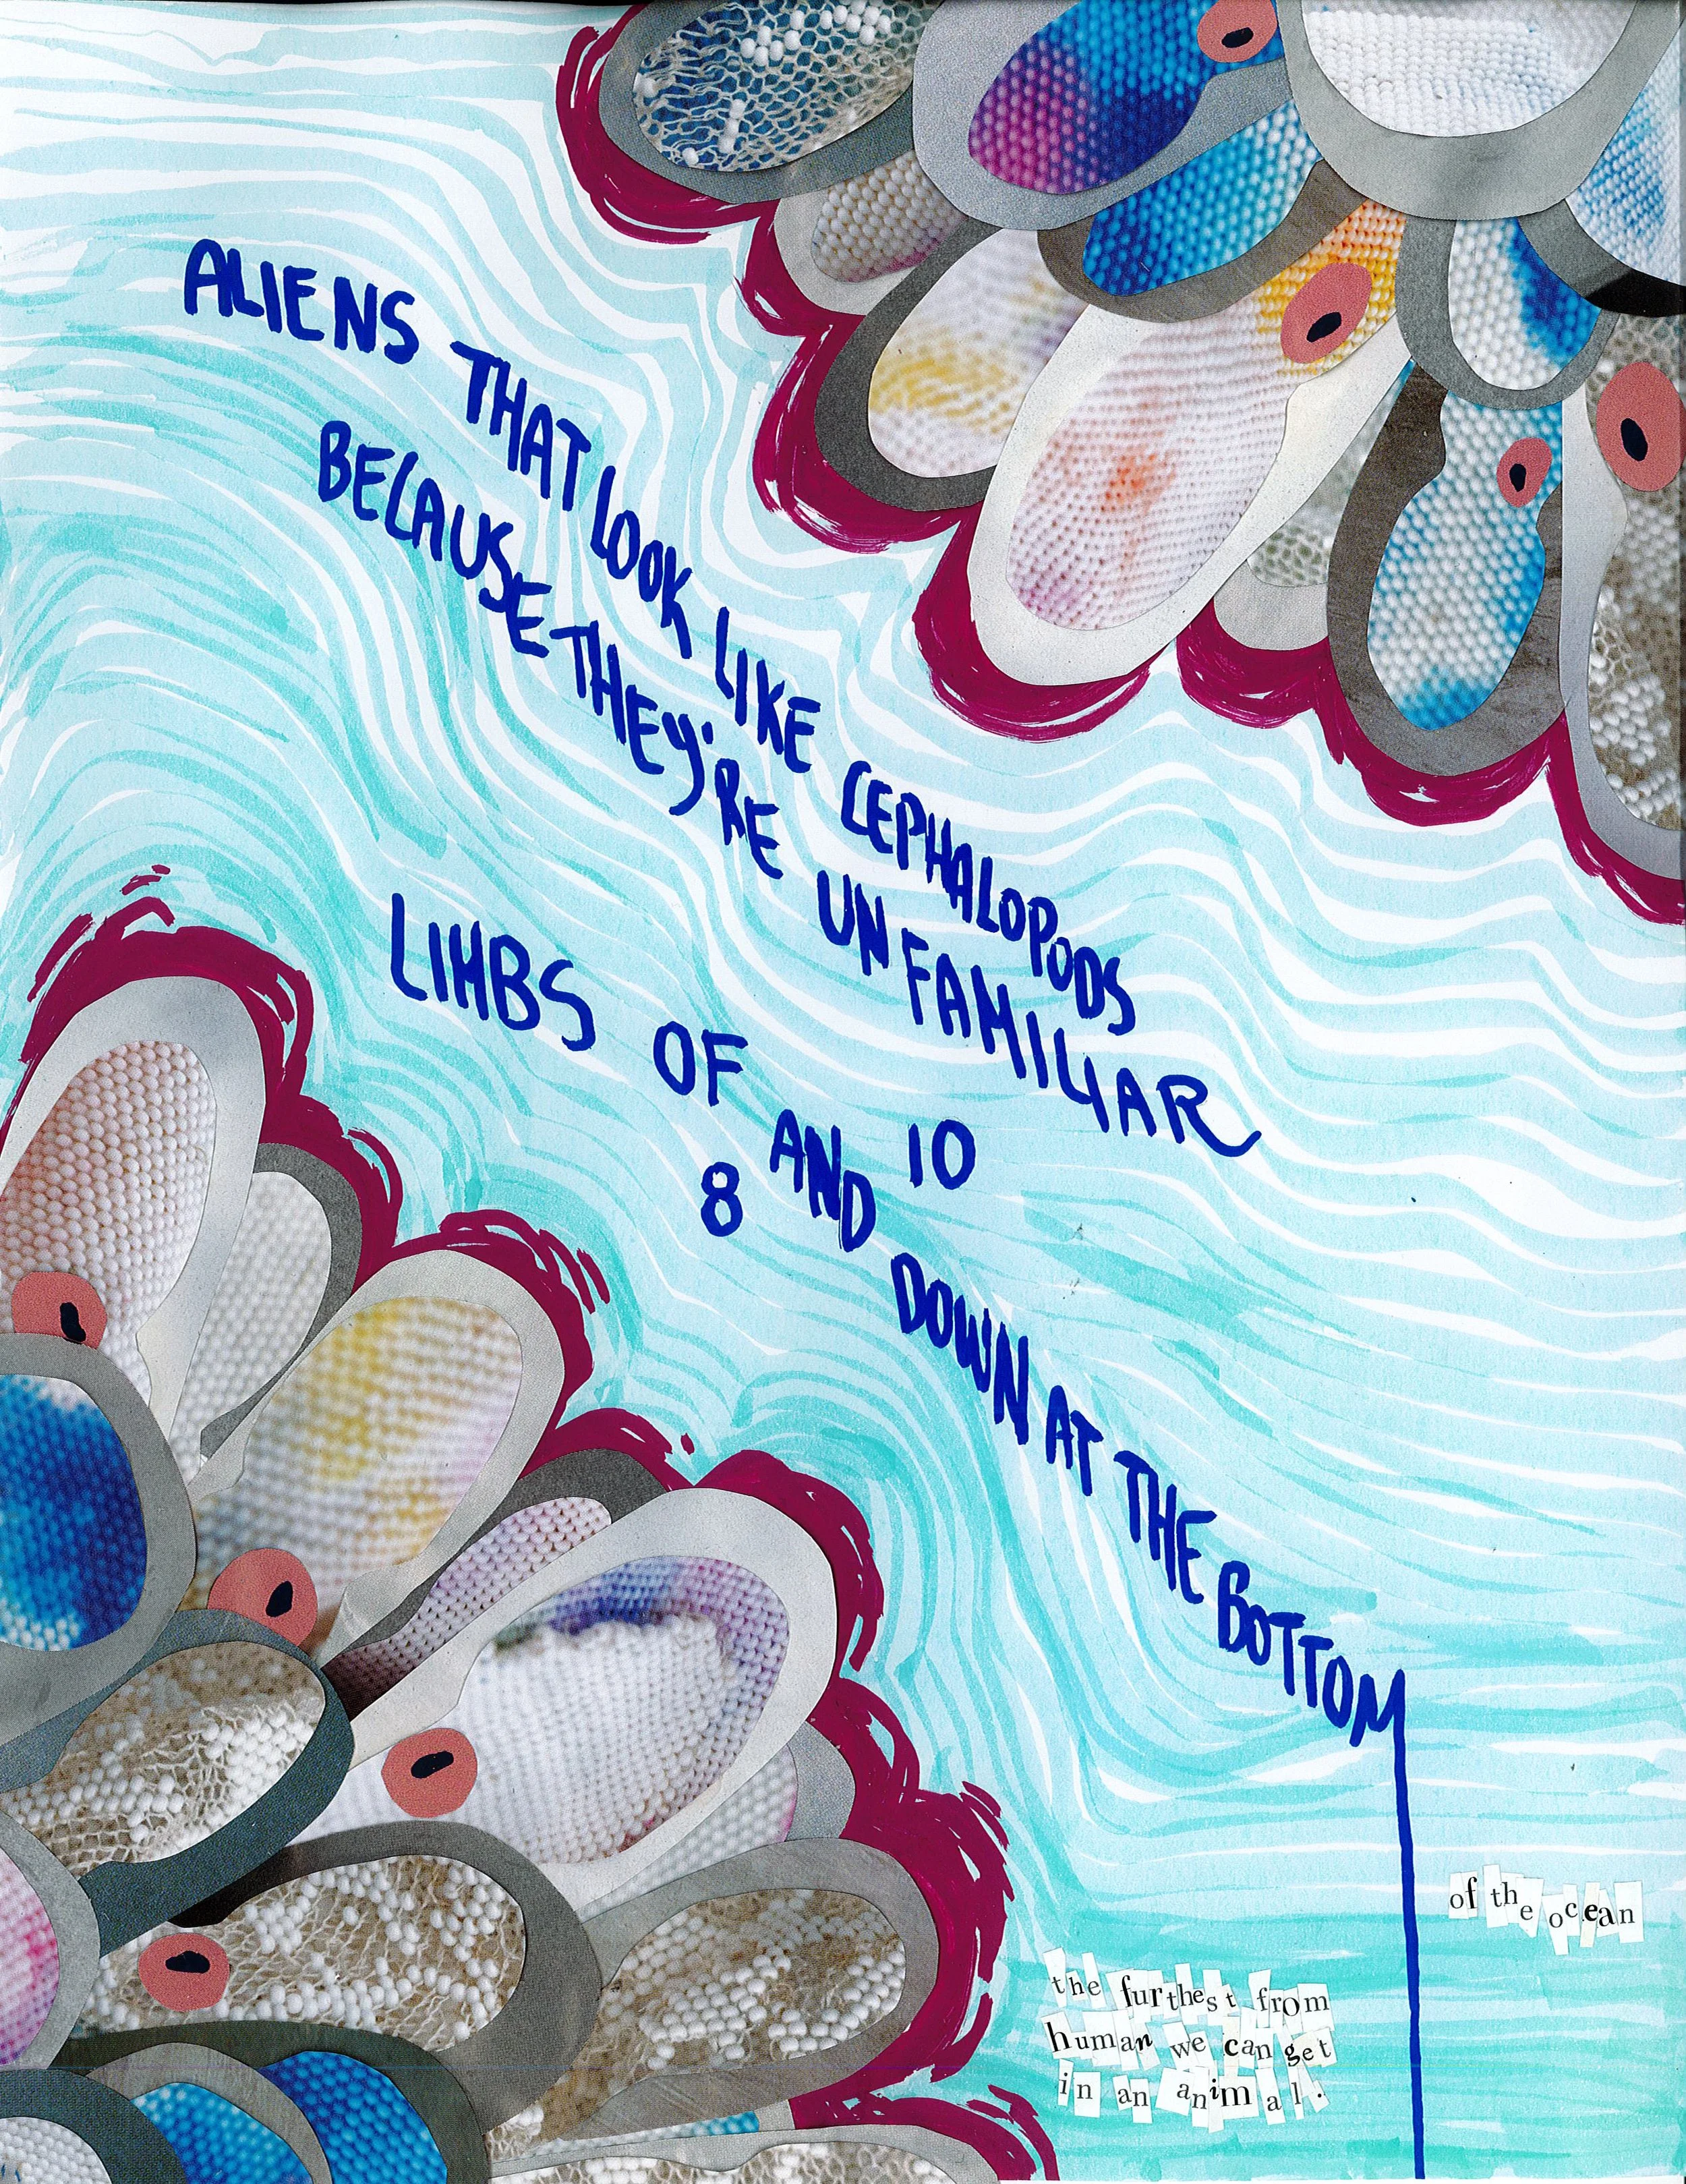 ALIENS THAT LOOK LIKE CEPHALOPODS
BECAUSE THEY'RE UNFAMILIAR
LIMBS OF
8 AND 10
DOWN AT THE BOTTOM
of the ocean
the furthest from
human we can get
in an animal.